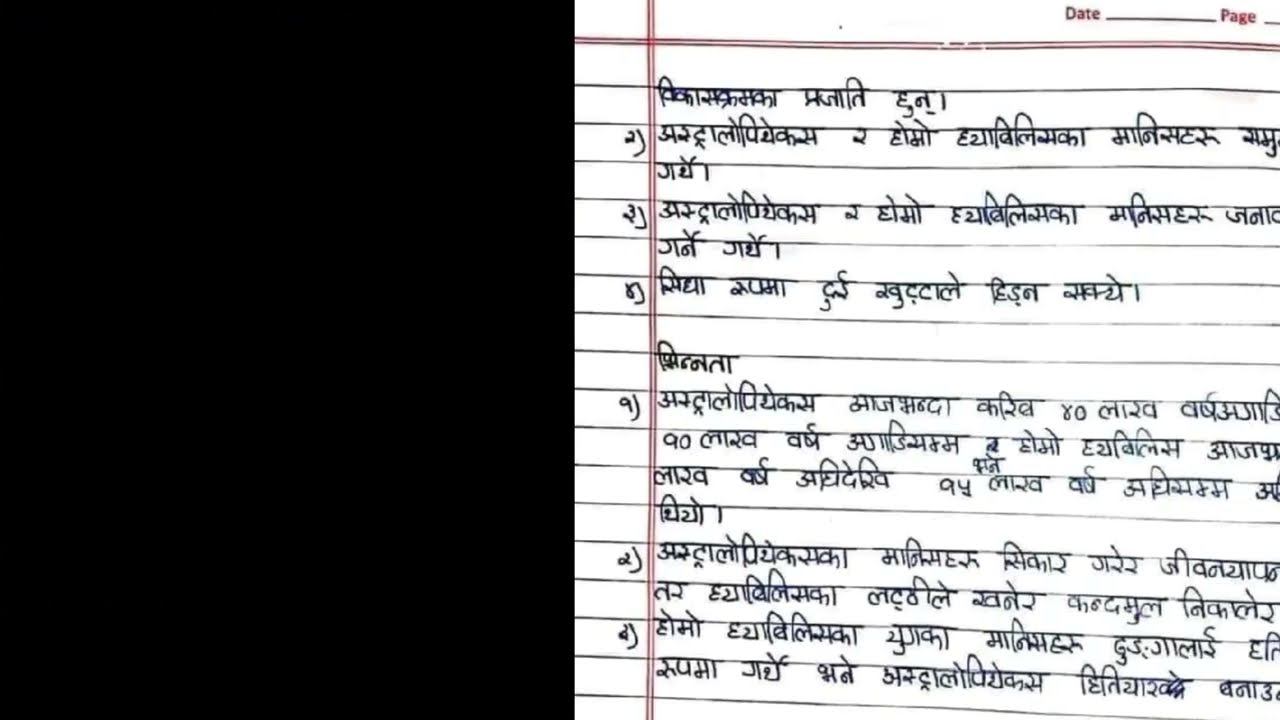 Date Page
विकासक्रमका प्रजाति हुन्।
२) अस्ट्रालोपिथेकस र होमो ह्याविलिसका मानिसहरू समु
गर्थे।
३) अस्ट्रालोपिथेकस र होमो ह्याविलिसका मनिसहरू
गर्ने गर्थे।
४) सिधा रूपमा दुई खुट्टाले हिड्न सक्थे।
भिन्नता
१) अस्ट्रालोपिथेकस आजभन्दा करिव ४० लाख वर्षअगाडि
१० लाख वर्ष अगाडिसम्म र होमो ह्यविलिस
भने
लाख वर्ष अघिदेखि १५ लाख वर्ष अघिसम्म
थियो।
२) अस्ट्रालोपिथेकसका मानिसहरू सिकार गरेर जीवनयापन
तर ह्याविलिसका लट्ठीले खनेर कन्दमुल निकालेर
३) होमो ह्याविलिसका युगका मानिसहरू ढुङ्गालाई हति
रूपमा गर्थे भने अस्ट्रालोपिथेकस बनाउ